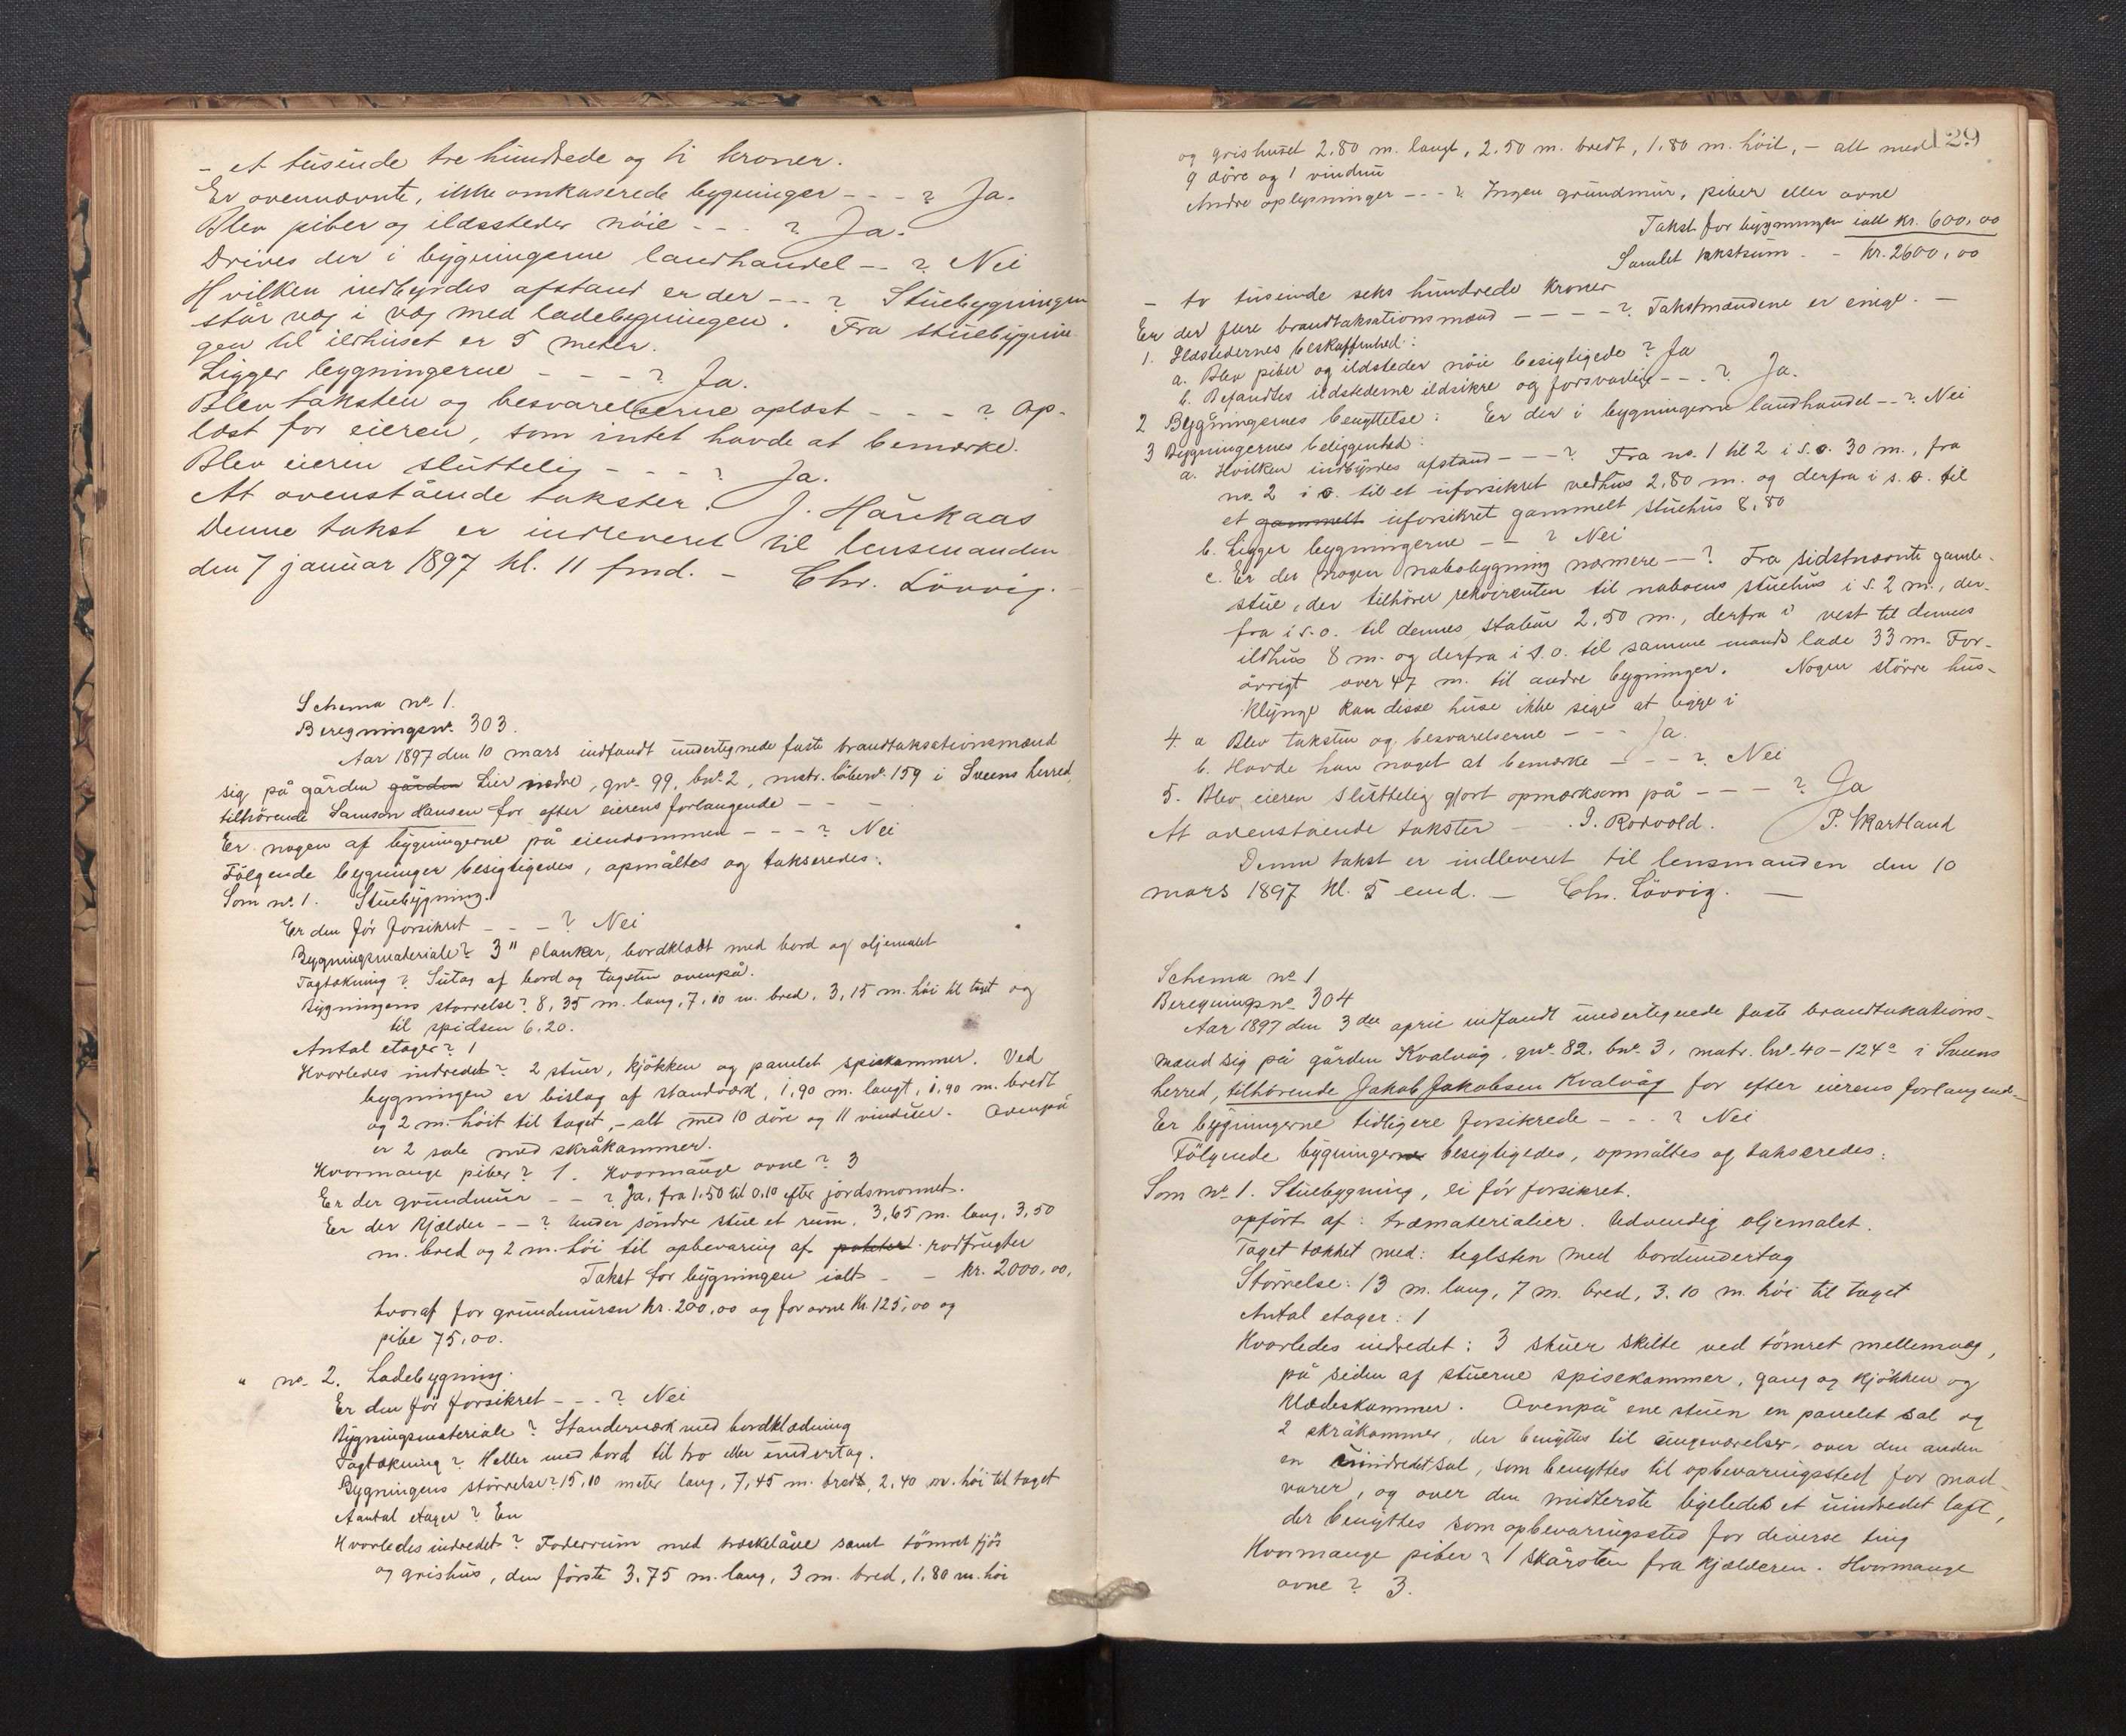 - et tusinde tre hundrede og ti kroner.
Er ovennævnte, ikke omkaserede bygninger - - - ? Ja.
Blev piber og ildssteder nöie - - - ? Ja.
Drives der i bygningerne landhandel - - ? Nei
Hvilken indbyrdes afstand er der - - - ? Stuebygningen
står væg i væg med ladebygningen. Fra stuebygnin-
gen til ildhuset er 5 meter.
Ligger bygningerne - - - ? Ja.
Blev taksten og besvarelserne oplæst - - - ? Op-
læst for eieren, som intet havde at bemærke.
Blev eieren sluttelig - - - ? Ja.
At ovenstående takster. J. Håukaas
Denne takst er indleveret til lensmanden
den 7 januar 1897 kl. 11 fmd. - Chr. Lövvig. -
Schema no. 1.
Beregningsno. 303.
Aar 1897 den 10 mars indfandt undertegnede faste brandtaksationsmænd
sig på gården gården Lier nedre, gno. 99, bno. 2, matr. löbeno. 159 i Sveens herred,
tilhörende Samson Hansen for efter eierens forlangende - - -
Er nogen af bygningerne på eiendommen - - - ? Nei
Fölgende bygninger besigtigedes, opmåltes og takseredes:
Som no. 1. Stuebygning.
Er den för forsikret - - - ? Nei
Bygningsmateriale? 3" planker, bordklædt med bord og oljemalet
Tagtækning? Sutag af bord og tagsten ovenpå.
Bygningens størrelse? 8,35 m. lang, 7,10 m. bred, 3,15 m. höi til taget og
til spidsen 6.20.
Antal etager? 1
Hvorledes indredet? 2 stuer, kjökken og panelet spiskammer. Ved
bygningen er bislag af standværk, 1,90 m. langt, 1,90 m. bredt
og 2 m. höit til taget, - alt med 10 döre og 11 vinduer. Ovenpå
er 2 sale med skråkammer.
Hvormange piber? 1. Hvormange ovne? 3
Er der grundmur - - ? Ja, fra 1.50 til 0.10 efter jordsmonnet.
Er der kjælder - - ? Under söndre stue et rum, 3,65 m. lang, 3,50
m. bred og 2 m. höi til opbevaring af poteter rodfrugter
Takst for bygningen ialt - - kr. 2000,00,
hvoraf for grundmuren kr. 200,00 og for ovne kr. 125,00 og
pibe 75,00.
" no. 2. Ladebygning.
Er den för forsikret - - - ? Nei
Bygningsmateriale? Standerværk med bordklædning
Tagtækning? Heller med bord til tro eller undertag.
Bygningens störrelse? 15,10 meter lang, 7,45 m. bredt, 2,40 m. höi til taget
Aantal etager? En
Hvorledes indredet? Foderrum med træskelåve samt tömret fjös
og grishus, den förste 3.75 m. lang, 3 m. bred, 1,80 m. höi
129
og grishuset 2,80 m. langt, 2.50 m. bredt, 1,80 m. höit, - alt med
9 döre og 1 vindu
Andre oplysninger - - - ? Ingen grundmur, piber eller ovne
Takst for bygningen ialt kr. 600,00
Samlet takstsum - - kr. 2600,00
- to tusinde seks hundrede kroner
Er der flere brandtaksationsmænd - - - - ? Takstmændene er enige. -
1. Ildstedernes beskaffenhed:
a. Blev piber og ildsteder nöie besigtigede? Ja
b. Befandtes ildstederne ildsikre og forsvarlige - - - ? Ja.
2 Bygningernes benyttelse: Er der i bygningerne landhandel - - ? Nei
3 Bygningernes beliggenhed:
a. Hvilken indbyrdes afstand - - - ? Fra no. 1 til 2 i s.o. 30 m., fra
no. 2 i o. til et uforsikret vedhus 2,80 m. og derfra i s.o. til
et gammelt uforsikret gammelt stuehus 8,80
b. Ligger bygningerne - - ? Nei
c. Er der nogen nabobygning nærmere - - ? Fra sidstnævnte gamle-
stue, der tilhörer rekvirenten til naboens stuehus i s. 2 m., der-
fra i s.o. til dennes stabur 2,50 m., derfra i vest til dennes
ildhus 8 m. og derfra i s.o. til samme mands lade 33 m. For-
övrigt over 47 m. til andre bygninger. Nogen större hus-
klynge kan disse huse ikke siges at ligge i
4. a Blev taksten og besvarelserne - - - Ja.
b. Havde han noget at bemærke - - - ? Nei
5. Blev eieren sluttelig gjort opmærksom på - - - ? Ja
At ovenstående takster - I. Rodvold. P. Skartland
Denne takst er indleveret til lensmanden den 10
mars 1897 kl. 5 emd. - Chr. Lövvig. -
Schema no 1
Beregningsno. 304
Aar 1897 den 3die april indfandt undertegnede faste brandtaksations-
mænd sig på gården Kvalvåg, gno. 82, bno. 3, matr. lno. 40 - 124a i Sveens
herred, tilhörende Jakob Jakobsen Kvalvåg for efter eierens forlangende
Er bygningerne tidligere forsikrede - - - ? Nei
Fölgende bygningerne besigtigedes, opmåltes og takseredes:
Som no 1. Stuebygning, ei för forsikret.
opfört af: træmaterialier. Udvendig oljemalet.
Taget tækket med: teglsten med bordundertag
Störrelse: 13 m. lang, 7 m. bred, 3.10 m. höi til taget
Antal etager: 1
Hvorledes indredet: 3 stuer skilte ved tömret mellemvæg,
på siden af stuerne spisekammer, gang og kjökken og
klædeskammer. Ovenpå ene stuen en panelet sal og
2 skråkammer, der benyttes til sengeværelser, over den anden
en uindredet sal, som benyttes til opbevaringssted for mad-
varer, og over den midterste ligeledes et uindredet loft,
der benyttes som opbevaringssted for diverse ting
Hvormange piber? 1 skårsten fra kjælderen. Hvormange
ovne? 3.